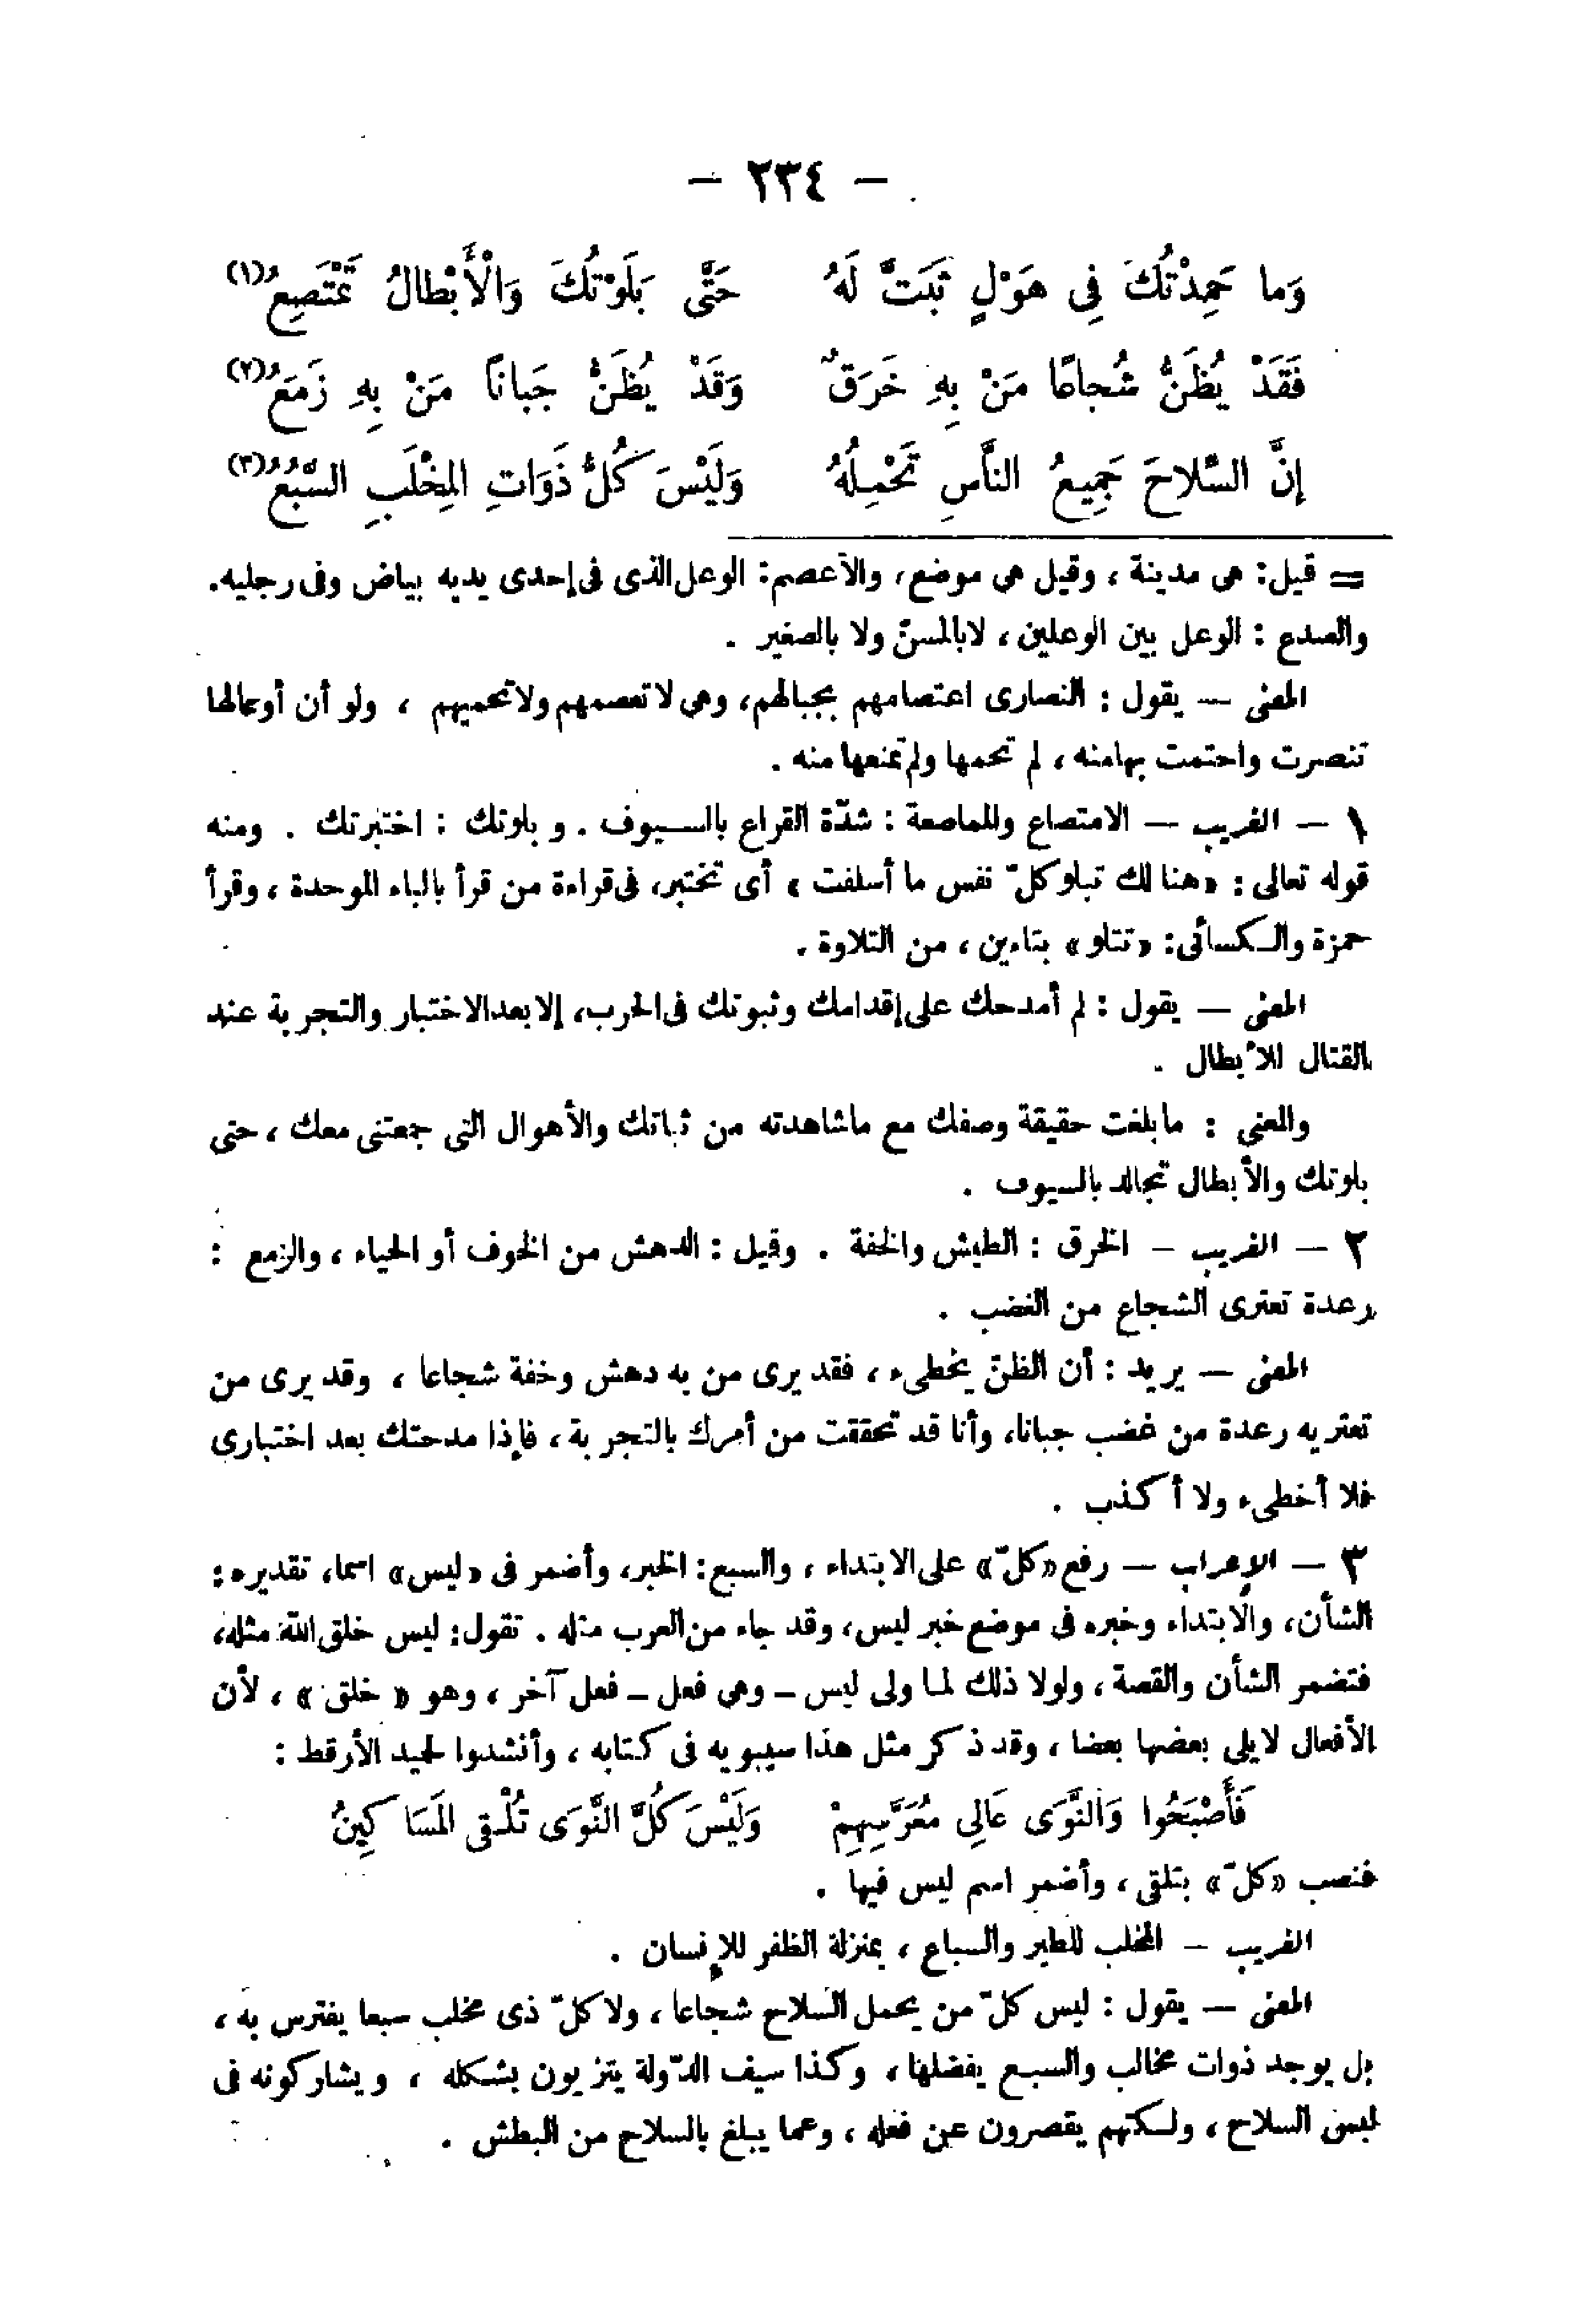 - ٢٣٤ -
وَما حَمِدْتُكَ فِى هَوْلٍ ثَبَتَّ لَهُ حَتَّى بَلَوْتُكَ وَالْأَبْطالُ تَمْتَصِعُ (١)
فَقَدْ يُظَنُّ شُجاعًا مَنْ بِهِ خَرَقٌ وَقَدْ يُظَنُّ جَبانًا مَنْ بِهِ زَمَعُ (٢)
إِنَّ السِّلاحَ جَمِيعُ النَّاسِ تَحْمِلُهُ وَلَيْسَ كُلُّ ذَوَاتِ المِخْلَبِ السَّبُعُ (٣)
= قيل: هى مدينة ، وقيل هى موضع، والأعصم: الوعل الذى فى إحدى يديه بياض وفى رجليه.
والصدع : الوعل بين الوعلين ، لا بالمسنّ ولا بالصغير .
المعنى — يقول : النصارى اعتصامهم بجبالهم، وهى لا تعصمهم ولا تحميهم ، ولو أن أوعالها
تنصرت واحتمت بها منه ، لم تحمها ولم تمنعها منه .
١ — الغريب — الامتصاع والمماصعة : شدّة القراع بالسيوف . و بلوتك : اختبرتك . ومنه
قوله تعالى : «هنا لك تبلو كلّ نفس ما أسلفت » أى تختبر، فى قراءة من قرأ بالباء الموحدة ، وقرأ
حمزة والكسائى: «تتلو» بتاءين ، من التلاوة .
المعنى — يقول : لم أمدحك على إقدامك وثبوتك فى الحرب، إلا بعد الاختبار والتجربة عند
القتال للأبطال .
والمعنى : ما بلغت حقيقة وصفك مع ما شاهدته من ثباتك والأهوال التى جمعتنى معك ، حتى
بلوتك والأبطال تجالد بالسيوف .
٢ — الغريب — الخرق : الطيش والخفة . وقيل : الدهش من الخوف أو الحياء ، والزمع :
رعدة تعترى الشجاع من الغضب .
المعنى — يريد : أن الظنّ يخطىء ، فقد يرى من به دهش وخفة شجاعا ، وقد يرى من
تعتريه رعدة من غضب جبانا، وأنا قد تحققت من أمرك بالتجربة ، فإذا مدحتك بعد اختبارى
فلا أخطىء ولا أكذب .
٣ — الإعراب — رفع «كلّ» على الابتداء ، والسبع: الخبر، وأضمر فى «ليس» اسما، تقديره:
الشأن، والابتداء وخبره فى موضع خبر ليس، وقد جاء من العرب مثله . تقول: ليس خلق الله مثله،
فتضمر الشأن والقصة ، ولولا ذلك لما ولى ليس — وهى فعل — فعل آخر ، وهو « خلق » ، لأن
الأفعال لا يلى بعضها بعضا ، وقد ذكر مثل هذا سيبويه فى كتابه ، وأنشدوا لحميد الأرقط :
فَأَصْبَحُوا وَالنَّوَى عَالِى مُعَرَّسِهِمْ وَلَيْسَ كُلَّ النَّوَى تُلْقِى المَسَاكِينُ
فنصب «كلّ» بتلقى ، وأضمر اسم ليس فيها .
الغريب — المخلب للطير والسباع ، بمنزلة الظفر للإنسان .
المعنى — يقول : ليس كلّ من يحمل السلاح شجاعا ، ولا كلّ ذى مخلب سبعا يفترس به ،
بل يوجد ذوات مخالب والسبع يفضلها ، وكذا سيف الدّولة يتزيون بشكله ، ويشاركونه فى
لبس السلاح ، ولكنهم يقصرون عن فعله ، وعما يبلغ بالسلاح من البطش .